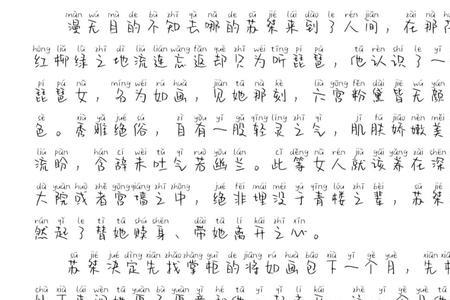 màn wú mù de bù zhī qù nǎ de sū jié lái dào le rén jiān zài nà
漫无目的不知去哪的苏桀来到了人间，在那
hóng liǔ lǜ zhī dì liú lián wàng fǎn què zhǐ wéi tīng pí pá tā rèn shi le yī
红柳绿之地流连忘返却只为听琵琶，他认识了一
pí pá nǚ míng wéi rú huà jiàn tā nà kè liù gōng fěn dài jiē wú yán
琵琶女，名为如画，见她那刻，六宫粉黛皆无颜
sè xiù yǎ jué sú zì yǒu yī gǔ qīng líng zhī qì jī fū jiāo nèn měi
色。秀雅绝俗，自有一股轻灵之气，肌肤娇嫩美
liú pàn hán cí wèi tǔ qì ruò yōu lán cǐ děng nǚ rén jiù gāi yǎng zài shēn
流盼，含辞未吐气若幽兰。此等女人就该养在深
dà yuàn huò zhě gōng qiáng zhī zhōng jué fēi mái mò yú qīng lóu zhī bèi sū jié
大院或者宫墙之中，绝非埋没于青楼之辈，苏桀
rán qǐ le tì tā shú shēn dài tā lí kāi zhī xīn
然起了替她赎身、带她离开之心。
sū jié jué dìng xiān zhǎo zhǎng guì de jiāng rú huà bāo xià yī gè yuè xiān
苏桀决定先找掌柜的将如画包下一个月，先